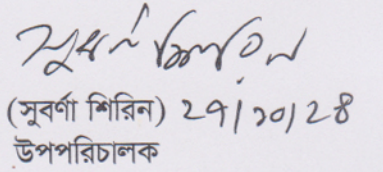 সুবর্ণা শিরিন
(সুবর্ণা শিরিন) ২৭/১০/২৪
উপপরিচালক